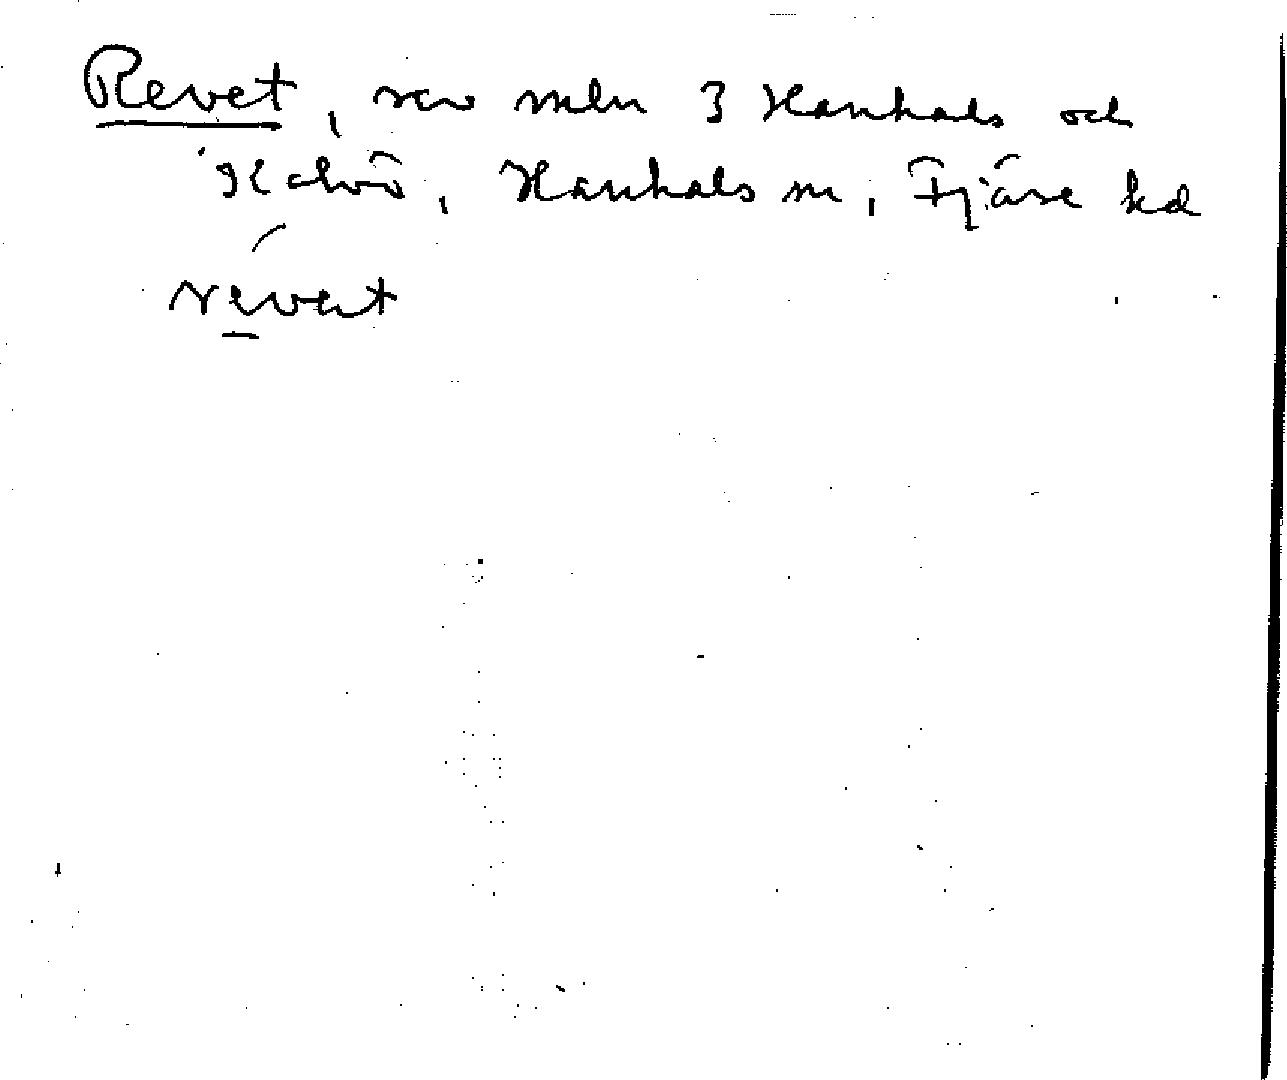 Revet, rev mln 3 Hanhals och
Kalvö, Hanhals sn, Fjäre hd
revet